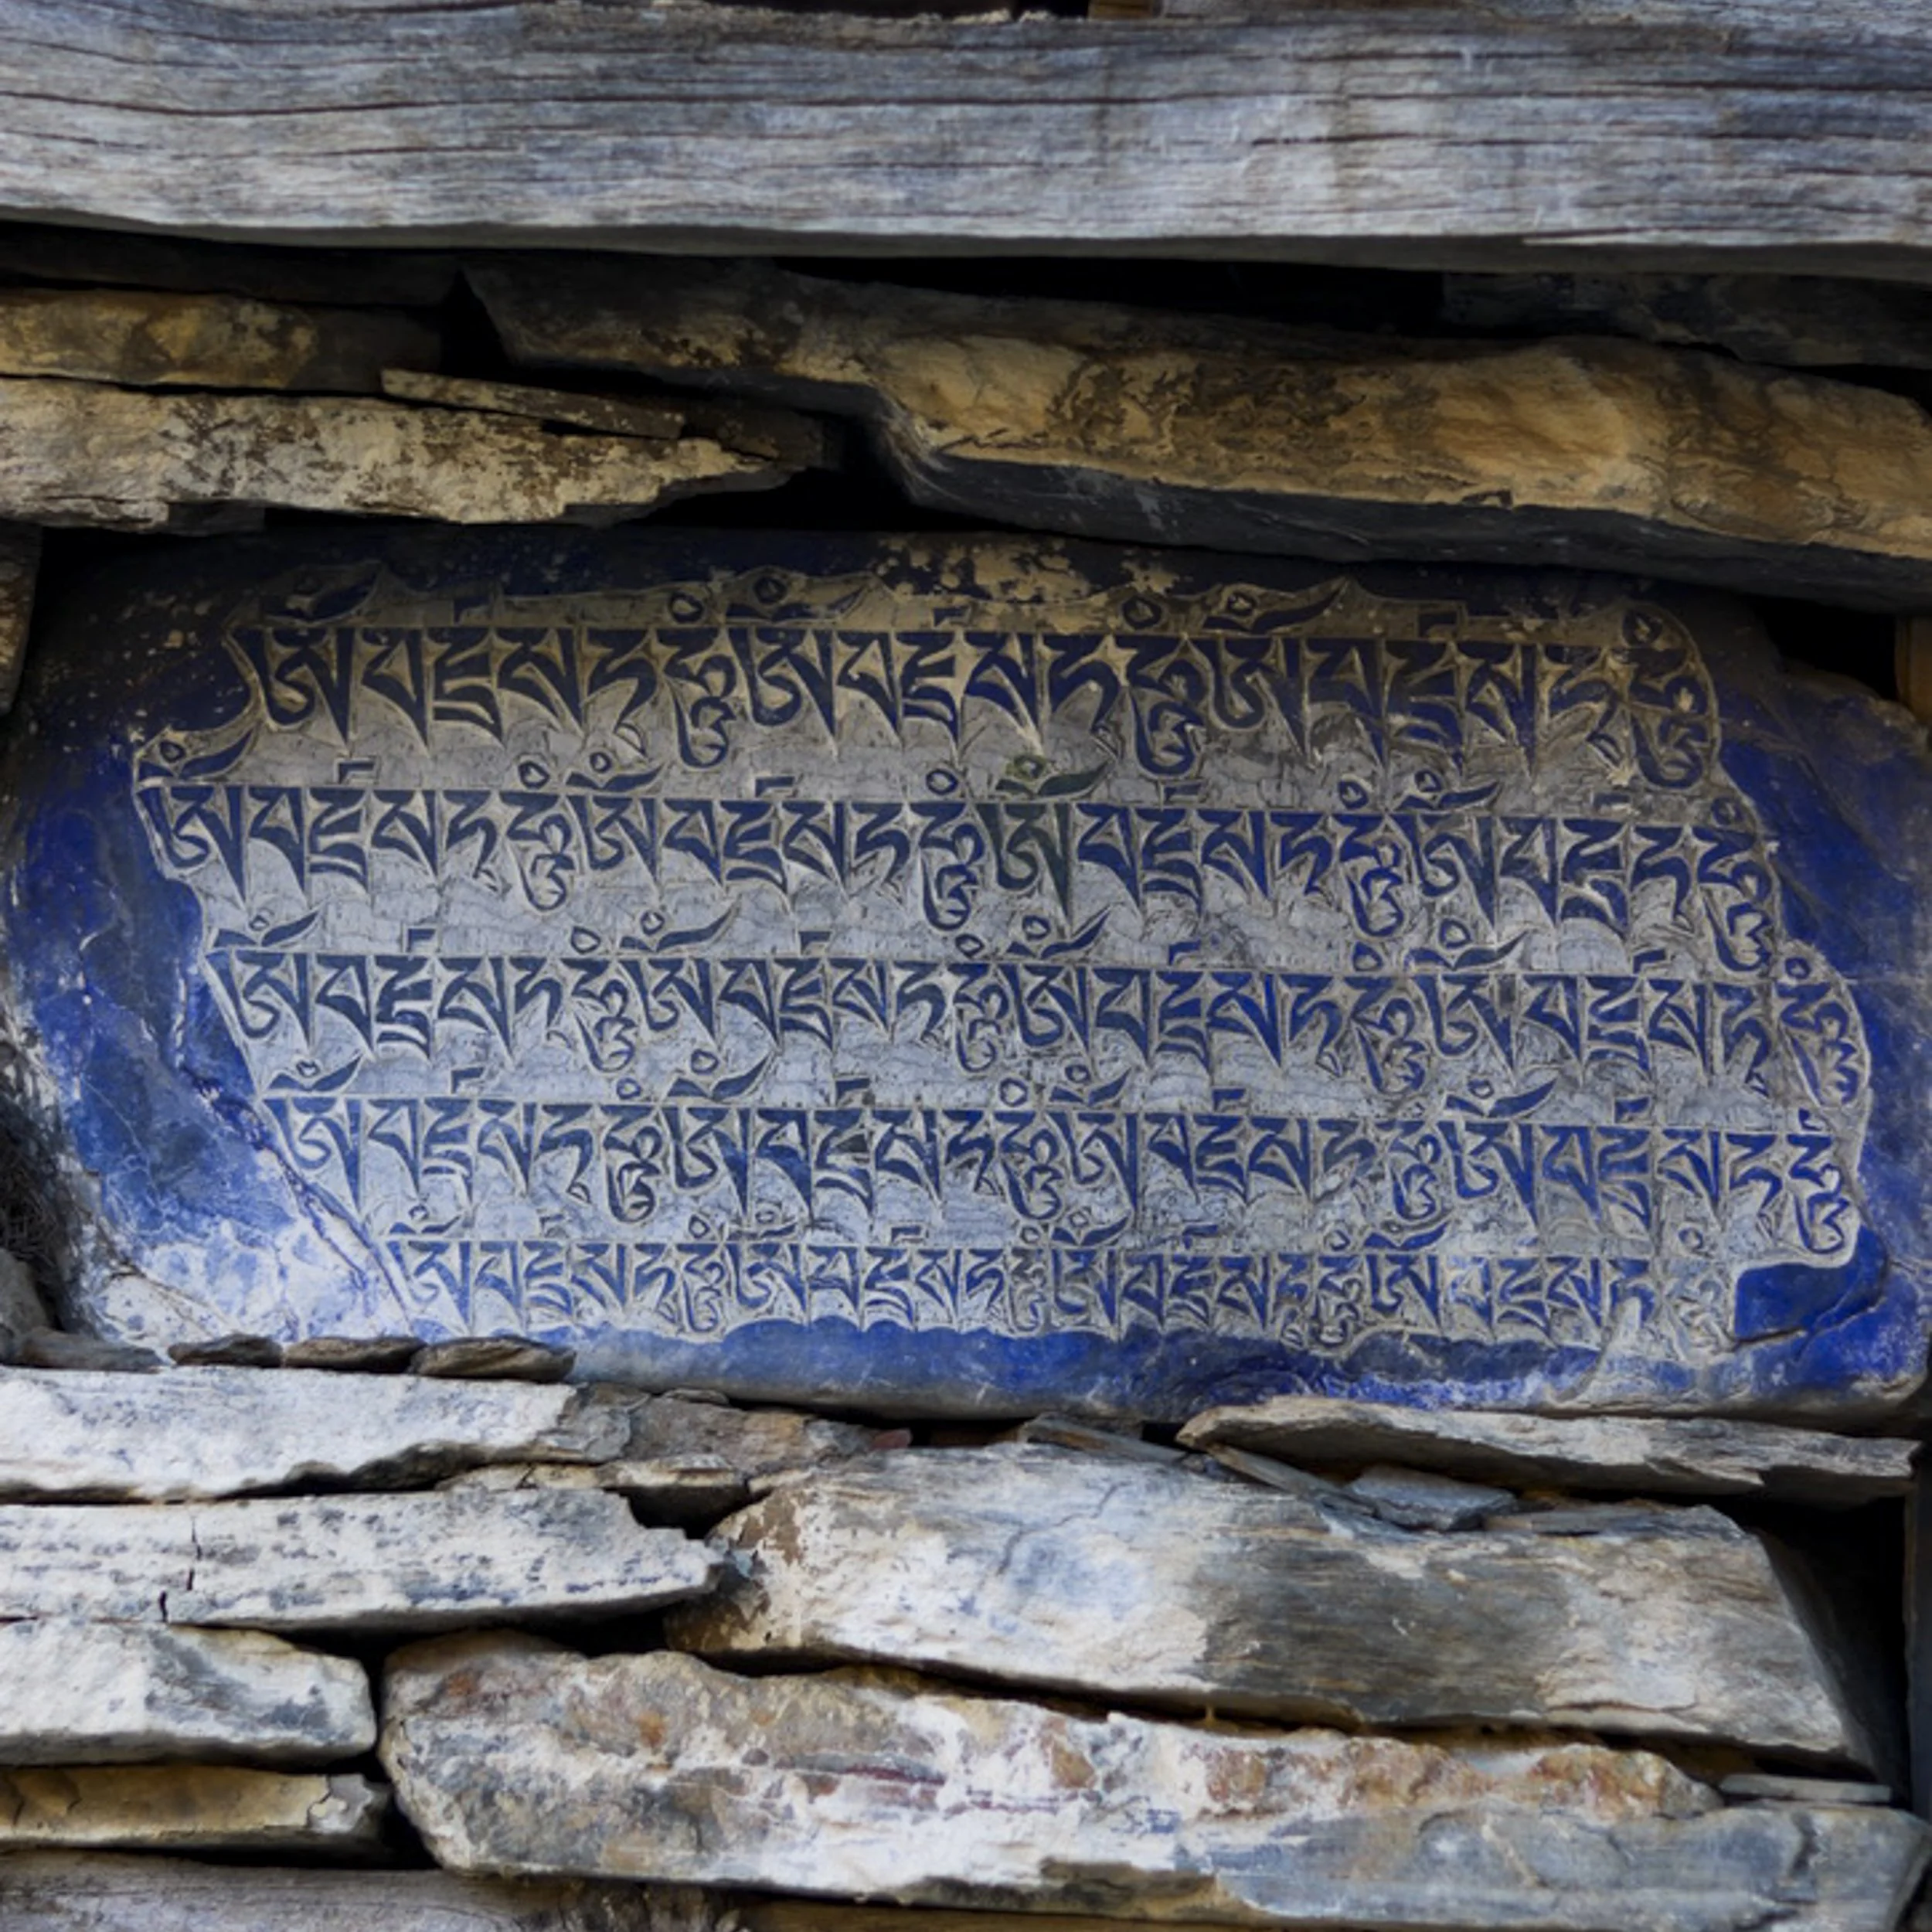 ཨོཾབཛྲསཏྭཧཱུྃཨོཾབཛྲསཏྭཧཱུྃཨོཾབཛྲསཏྭཧཱུྃ
ཨོཾབཛྲསཏྭཧཱུྃཨོཾབཛྲསཏྭཧཱུྃཨོཾབཛྲསཏྭཧཱུྃཨོཾབཛྲཏྭཧཱུྃ
ཨོཾབཛྲསཏྭཧཱུྃཨོཾབཛྲསཏྭཧཱུྃཨོཾབཛྲསཏྭཧཱུྃཨོཾབཛྲསཏྭཧཱུྃ
ཨོཾབཛྲསཏྭཧཱུྃཨོཾབཛྲསཏྭཧཱུྃཨོཾབཛྲསཏྭཧཱུྃཨོཾབཛྲསཏྭཧཱུྃ
ཨོཾབཛྲསཏྭཧཱུྃཨོཾབཛྲསཏྭཧཱུྃཨོཾབཛྲསཏྭཧཱུྃཨོཾབཛྲསཏྭཧཱུྃ